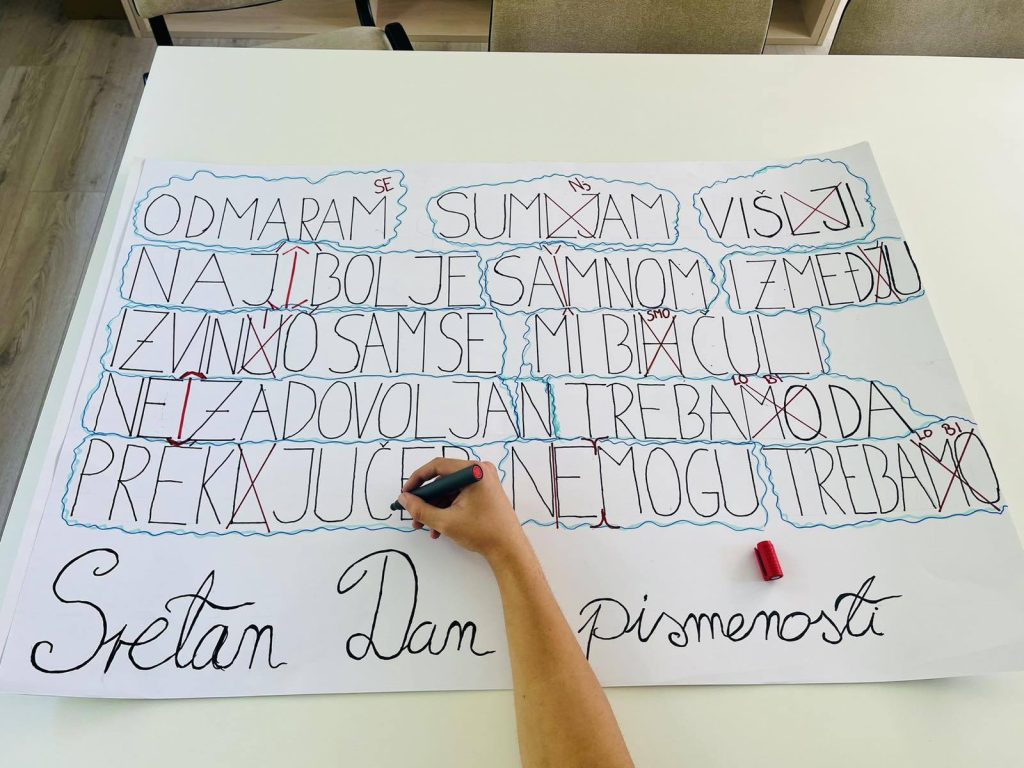 ODMARAM SE SUMLJAM NJ VIŠLJI
NAJ BOLJE SA MNOM IZMEĐJU
IZVINUO SAM SE MI BIH SMO ČULI
NE ZADOVOLJAN TREBAMO LO BI DA
PREKLJUČER NEMOGU TREBAMO LO BI
Sretan Dan pismenosti